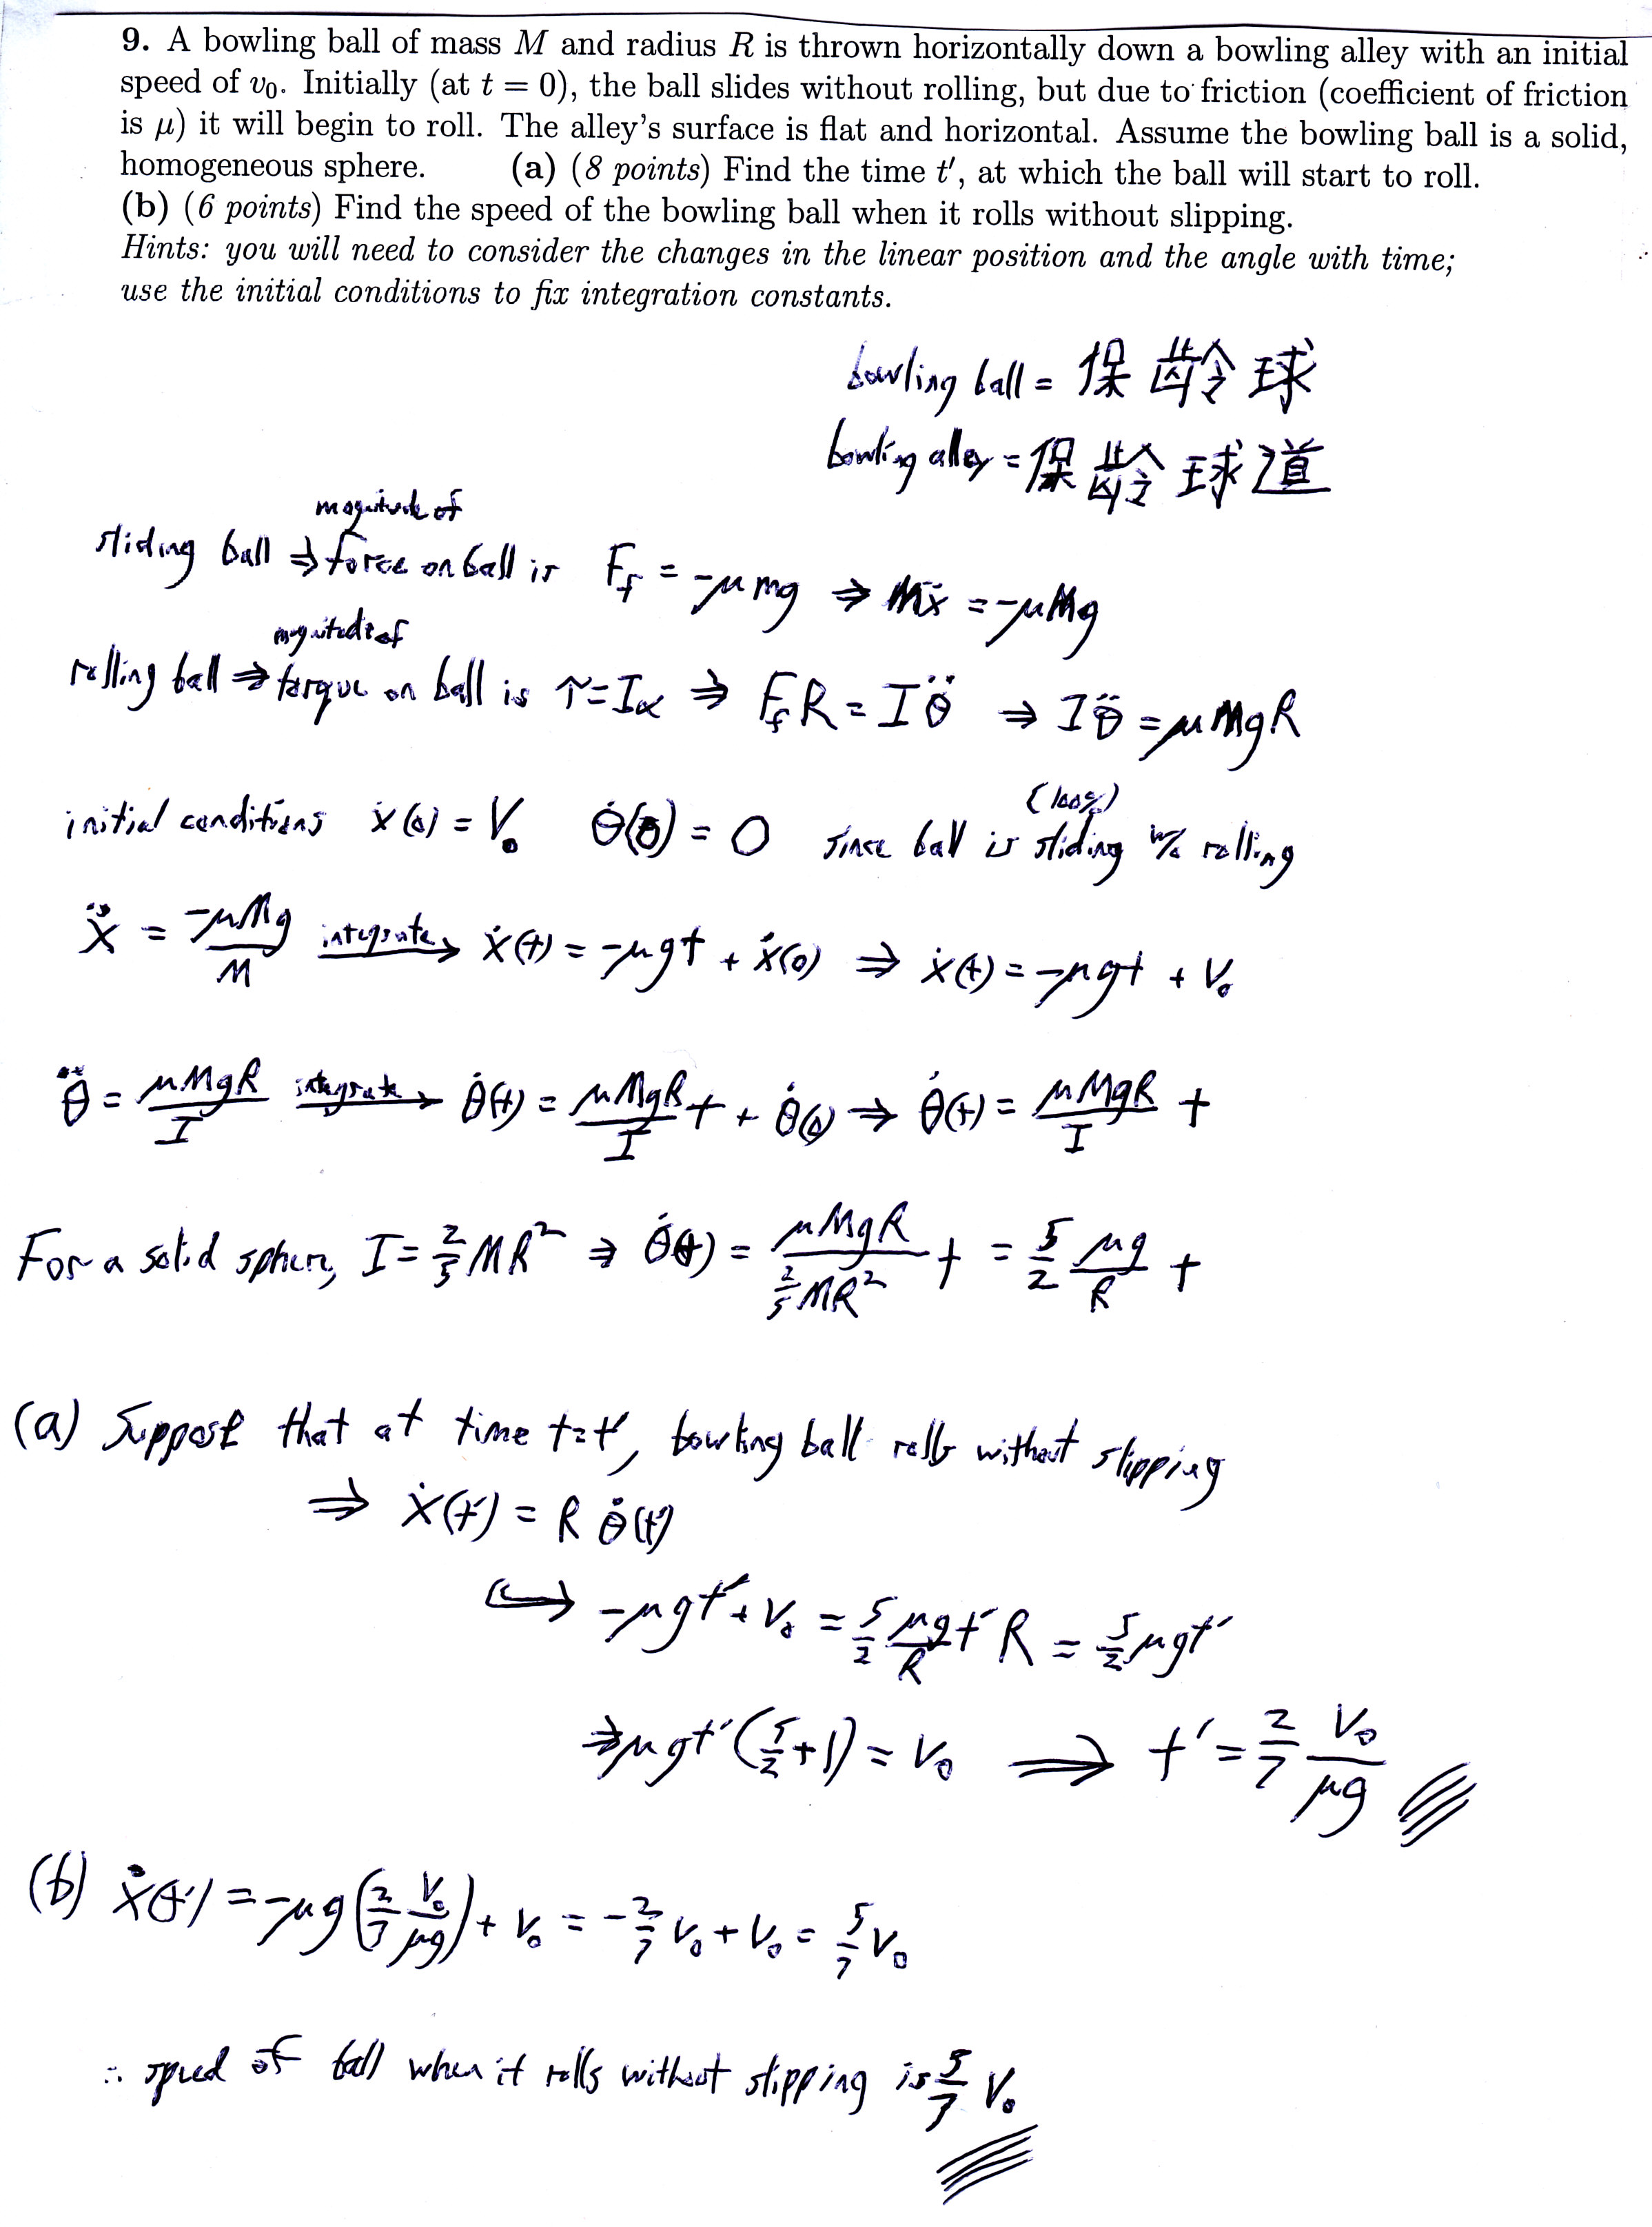 9. A bowling ball of mass M and radius R is thrown horizontally down a bowling alley with an initial
speed of v₀. Initially (at t = 0), the ball slides without rolling, but due to friction (coefficient of friction
is μ) it will begin to roll. The alley's surface is flat and horizontal. Assume the bowling ball is a solid,
homogeneous sphere. (a) (8 points) Find the time t′, at which the ball will start to roll.
(b) (6 points) Find the speed of the bowling ball when it rolls without slipping.
Hints: you will need to consider the changes in the linear position and the angle with time;
use the initial conditions to fix integration constants.
bowling ball = 保龄球
bowling alley = 保龄球道
magnitude of
sliding ball ⇒ force on ball is F_f = -μmg ⇒ Mẍ = -μMg
magnitude of
rolling ball ⇒ torque on ball is τ = Iα ⇒ F_f R = Iθ̈ ⇒ Iθ̈ = μMgR
(100%)
initial conditions ẋ(0) = V₀ θ̇(0) = 0 since ball is sliding w/o rolling
ẍ = -μMg/M integrate → ẋ(t) = -μgt + ẋ(0) ⇒ ẋ(t) = -μgt + V₀
θ̈ = μMgR/I integrate → θ̇(t) = μMgR/I t + θ̇(0) ⇒ θ̇(t) = μMgR/I t
For a solid sphere, I = 2/5 MR² ⇒ θ̇(t) = μMgR/(2/5 MR²) t = 5/2 μg/R t
(a) Suppose that at time t=t′, bowling ball rolls without slipping
⇒ ẋ(t′) = R θ̇(t′)
↪ -μgt′ + V₀ = 5/2 μg/R t′ R = 5/2 μgt′
⇒ μgt′(5/2 + 1) = V₀ ⟹ t′ = 2/7 V₀/μg
(b) ẋ(t′) = -μg(2/7 V₀/μg) + V₀ = -2/7 V₀ + V₀ = 5/7 V₀
∴ speed of ball when it rolls without slipping is 5/7 V₀